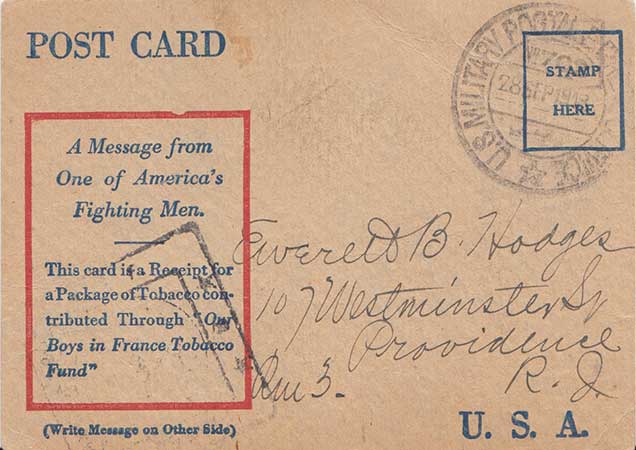 POST CARD
A Message from
One of America's
Fighting Men.
This card is a Receipt for
a Package of Tobacco con-
tributed Through "Our
Boys in France Tobacco
Fund"
(Write Message on Other Side)
U.S. MILITARY POSTAL
28 SEP 1918
STAMP
HERE
Everett B. Hodges
107 Westminster St
Providence
Rm 3. R. I.
U. S. A.